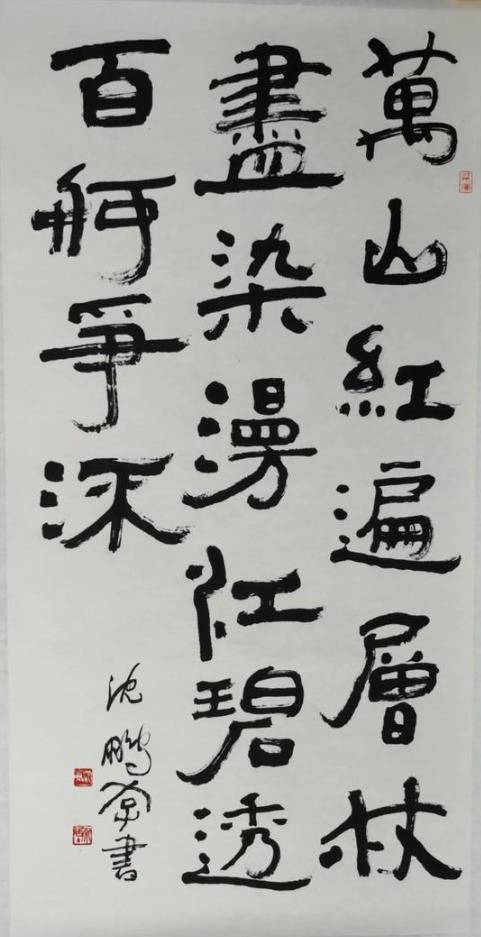 萬山紅遍層林
盡染漫江碧透
百舸爭流
沈鵬書